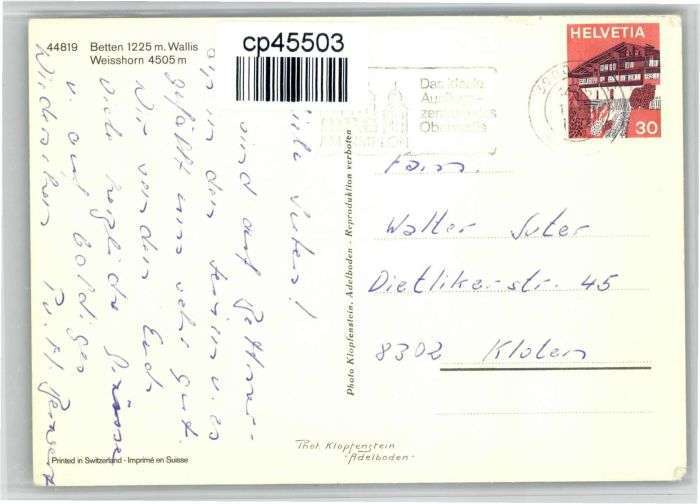 44819 Betten 1225 m. Wallis
Weisshorn 4505 m
cp45503
HELVETIA
30
Das ideale
Oberwallis
Fam.
Walter Suter
Dietlikerstr. 45
8302 Kloten
Photo Klopfenstein, Adelboden - Reproduktion verboten
Suter!
sind auf Bettmer-
in den Ferien u. es
gefällt uns sehr gut.
Wir senden Euch
viele herzliche Grüsse
u. auf baldiges
Wiedersehen
Phot. Klopfenstein
-Adelboden-
Printed in Switzerland - Imprimé en Suisse